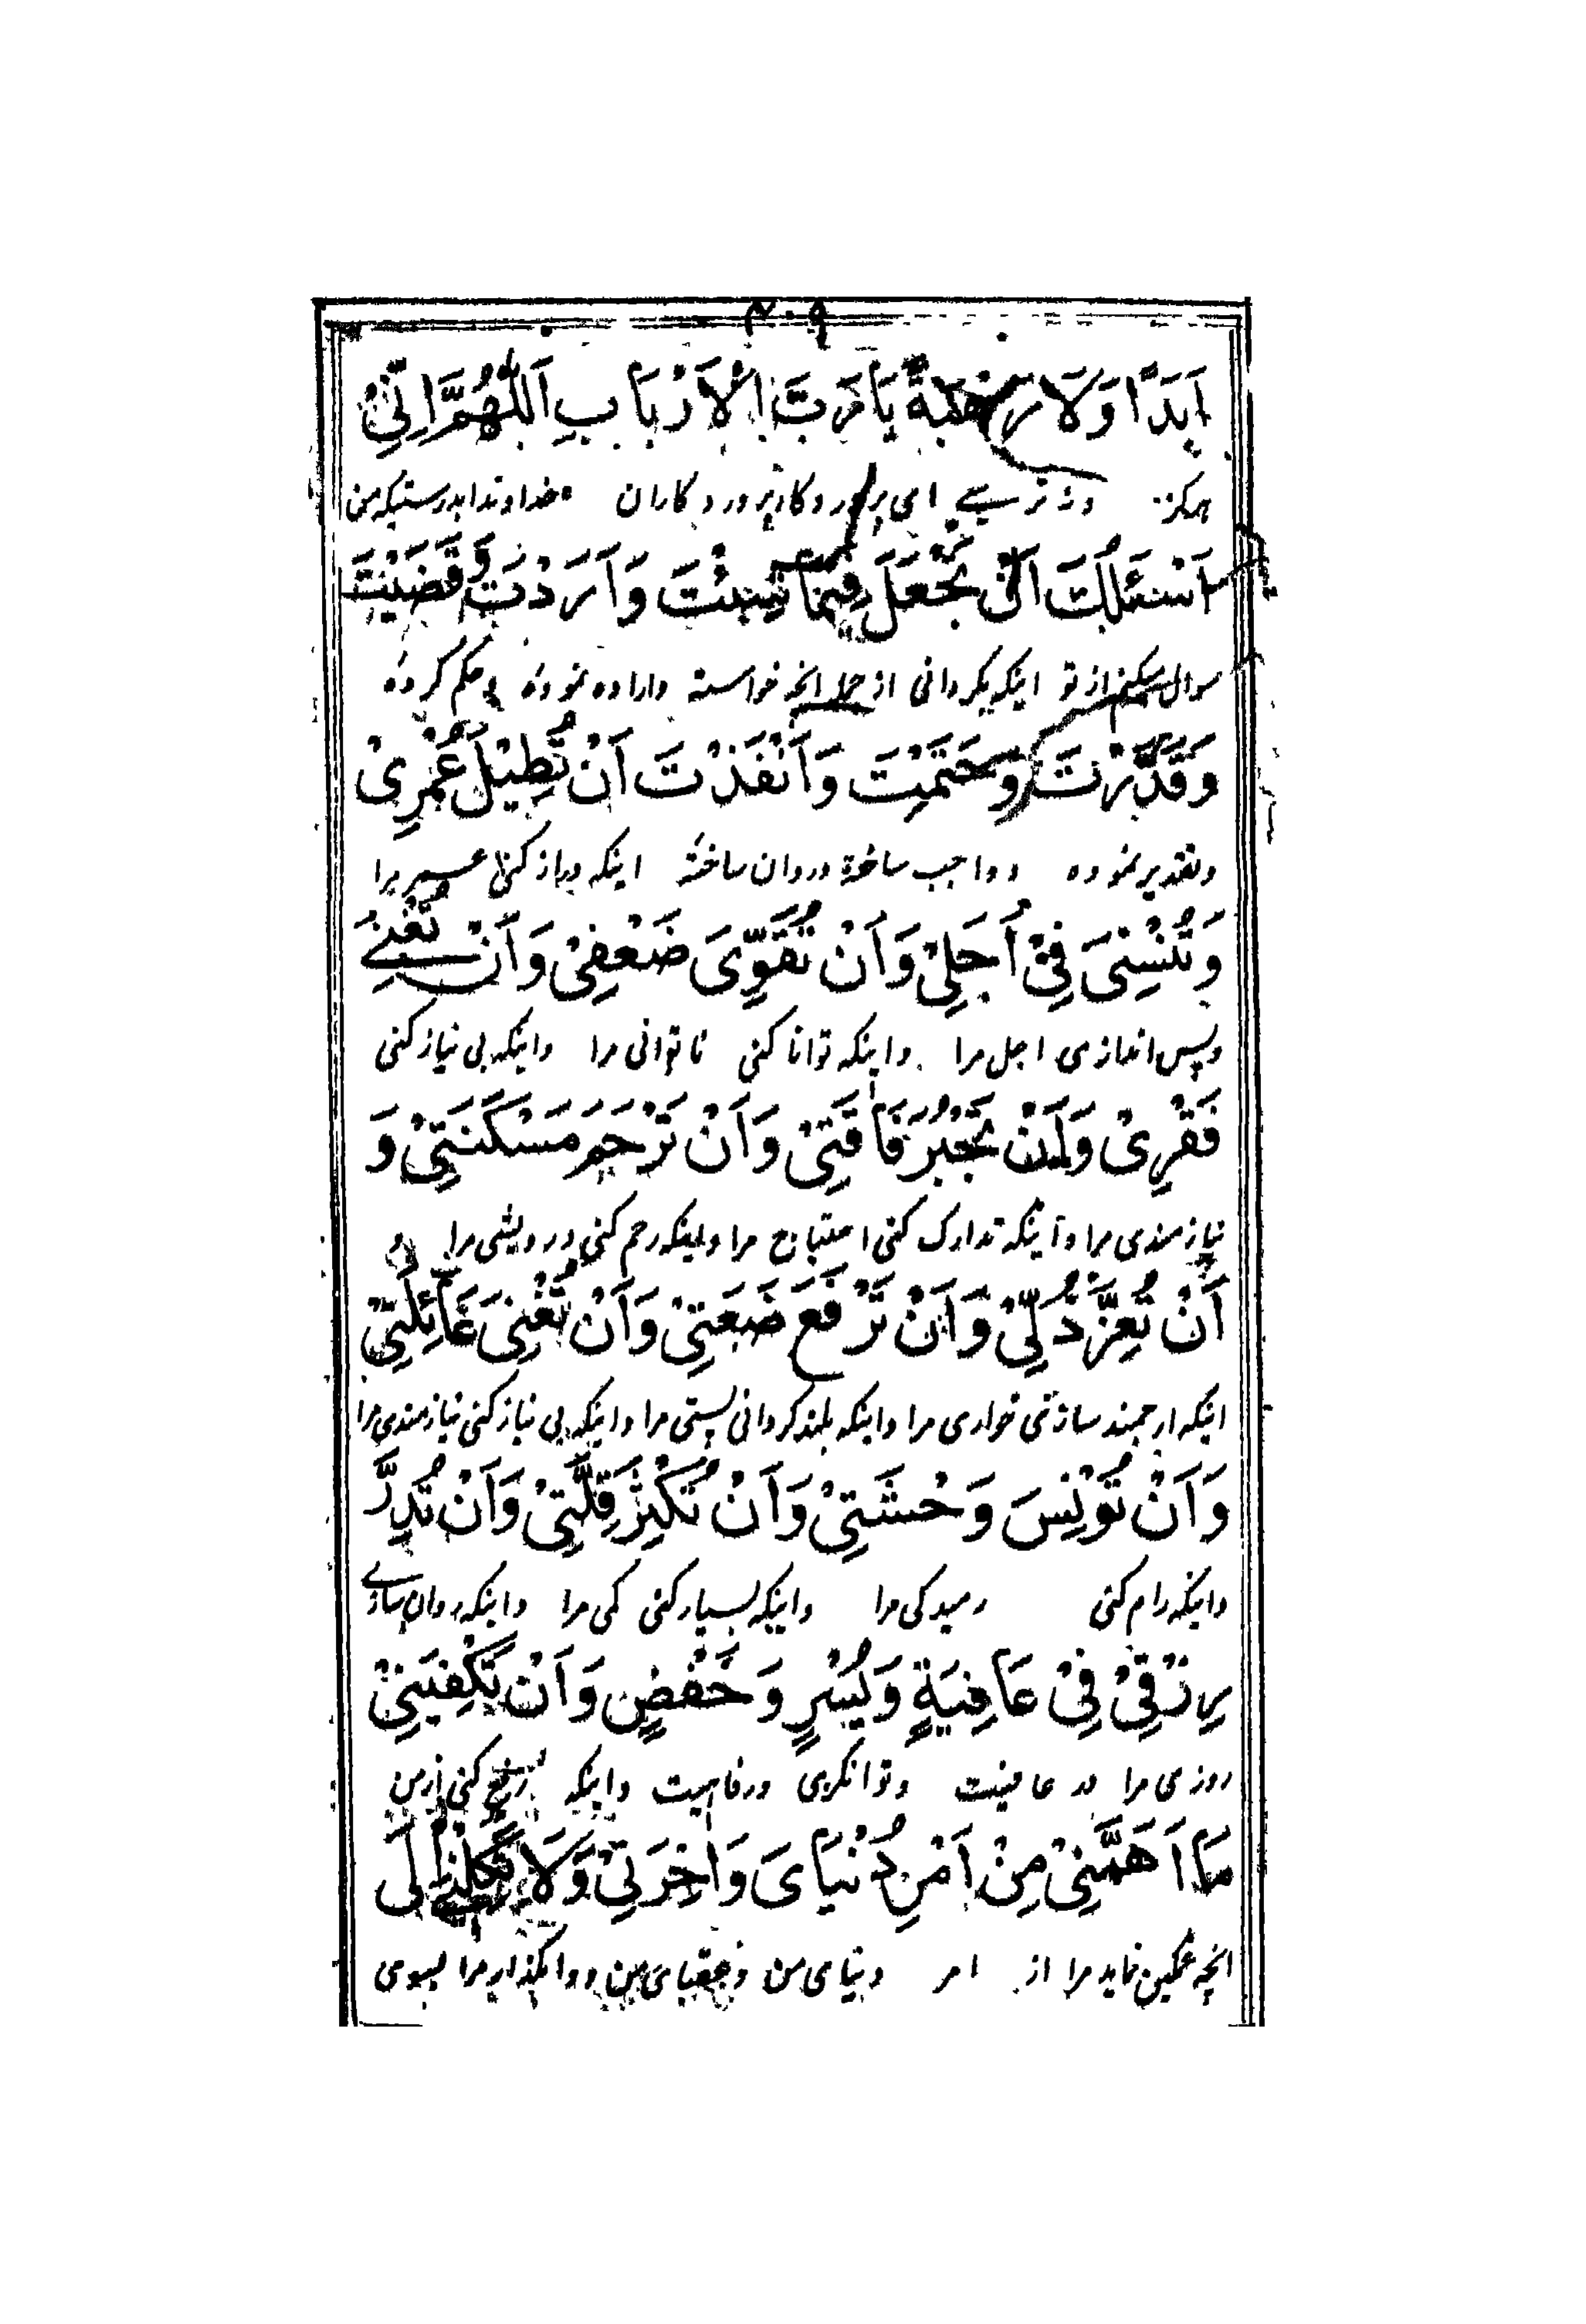 ٢٠٩
اَبَدًا وَلَا رَهْبَةً يَا رَبَّ الْاَرْبَابِ اَللّٰهُمَّ اِنِّىْ
هرگز ونه ترسے ای پروردگار پروردگاران خداوندا بدرستیکه من
اَسْئَلُكَ اَنْ تَجْعَلَ فِيْمَا شِئْتَ وَاَرَدْتَ وَقَضَيْتَ
سوال میکنم از تو اینکه بگردانی از جمله انچه خواسته واراده نموده و حکم کرده
وَقَدَّرْتَ وَحَتَمْتَ وَاَنْفَذْتَ اَنْ تُطِيْلَ عُمْرِىْ
وتقدیر نموده و واجب ساخته وروان ساخته اینکه دراز کنی عمر مرا
وَتُنْسِئَ فِىْ اَجَلِىْ وَاَنْ تُقَوِّىَ ضَعْفِىْ وَاَنْ تُغْنِىَ
وپس اندازی اجل مرا واینکه توانا کنی ناتوانی مرا واینکه بی نیاز کنی
فَقْرِىْ وَاَنْ تَجْبُرَ فَاقَتِىْ وَاَنْ تَرْحَمَ مَسْكَنَتِىْ وَ
نیازمندی مرا واینکه تدارک کنی احتیاج مرا واینکه رحم کنی درویشی مرا و
اَنْ تُعِزَّ ذُلِّىْ وَاَنْ تَرْفَعَ ضَعَتِىْ وَاَنْ تُغْنِىَ عَائِلَتِىْ
اینکه ارجمند سازی خواری مرا واینکه بلند گردانی پستی مرا واینکه بی نیاز کنی نیازمندی مرا
وَاَنْ تُوْنِسَ وَحْشَتِىْ وَاَنْ تُكْثِرَ قِلَّتِىْ وَاَنْ تُدِرَّ
واینکه رام کنی رمیدگی مرا واینکه بسیار کنی کمی مرا واینکه روان سازے
رِزْقِىْ فِىْ عَافِيَةٍ وَيُسْرٍ وَخَفْضٍ وَاَنْ تَكْفِيَنِىْ
روزی مرا در عافیت وتوانگری ورفاهیت واینکه رفع کنی از من
مَا اَهَمَّنِىْ مِنْ اَمْرِ دُنْيَاىَ وَاٰخِرَتِىْ وَلَا تَكِلْنِىْ اِلٰى
انچه غمگین نماید مرا از امر دنیای من وعقبای من و وامگذار مرا بسوی